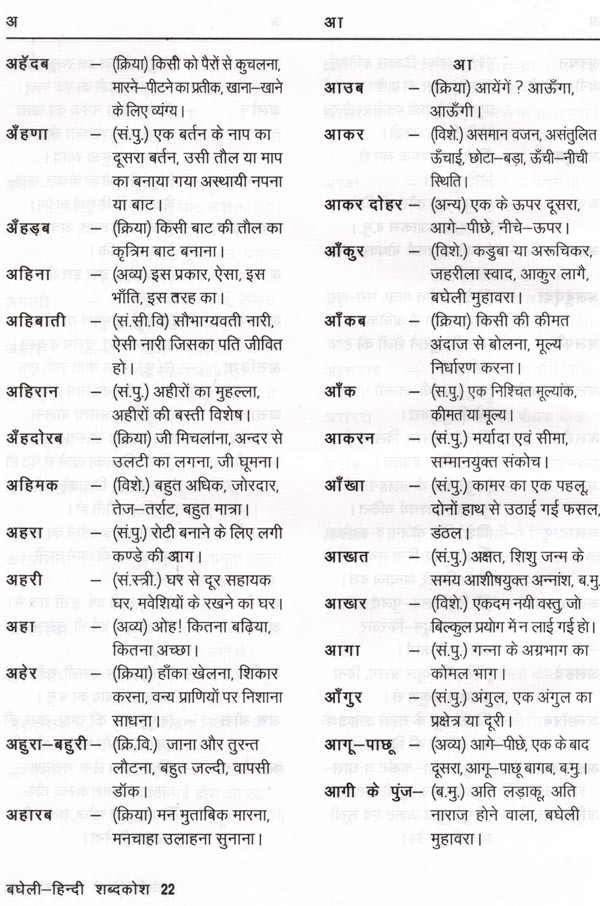 अ
आ
अहॅदब – (क्रिया) किसी को पैरों से कुचलना,
मारने–पीटने का प्रतीक, खाना–खाने
के लिए व्यंग्य।
अँहणा – (सं.पु.) एक बर्तन के नाप का
दूसरा बर्तन, उसी तौल या माप
का बनाया गया अस्थायी नपना
या बाट।
अँहड़ब – (क्रिया) किसी बाट की तौल का
कृत्रिम बाट बनाना।
अहिना – (अव्य) इस प्रकार, ऐसा, इस
भाँति, इस तरह का।
अहिबाती – (सं.सी.वि) सौभाग्यवती नारी,
ऐसी नारी जिसका पति जीवित
हो।
अहिरान – (सं.पु.) अहीरों का मुहल्ला,
अहीरों की बस्ती विशेष।
अँहदोरब – (क्रिया) जी मिचलांना, अन्दर से
उलटी का लगना, जी घूमना।
अहिमक – (विशे.) बहुत अधिक, जोरदार,
तेज–तर्राट, बहुत मात्रा।
अहरा – (सं.पु.) रोटी बनाने के लिए लगी
कण्डे की आग।
अहरी – (सं.स्त्री.) घर से दूर सहायक
घर, मवेशियों के रखने का घर।
अहा – (अव्य) ओह! कितना बढ़िया,
कितना अच्छा।
अहेर – (क्रिया) हाँका खेलना, शिकार
करना, वन्य प्राणियों पर निशाना
साधना।
अहुरा–बहुरी – (क्रि.वि.) जाना और तुरन्त
लौटना, बहुत जल्दी, वापसी
डाँक।
अहारब – (क्रिया) मन मुताबिक मारना,
मनचाहा उलाहना सुनाना।
आ
आउब – (क्रिया) आयेंगें ? आऊँगा,
आऊँगी।
आकर – (विशे.) असमान वजन, असंतुलित
ऊँचाई, छोटा–बड़ा, ऊँची–नीची
स्थिति।
आकर दोहर – (अन्य) एक के ऊपर दूसरा,
आगे–पीछे, नीचे–ऊपर।
आँकुर – (विशे.) कडुबा या अरूचिकर,
जहरीला स्वाद, आकुर लागै,
बघेली मुहावरा।
आँकब – (क्रिया) किसी की कीमत
अंदाज से बोलना, मूल्य
निर्धारण करना।
आँक – (स.पु.) एक निश्चित मूल्यांक,
कीमत या मूल्य।
आकरन – (सं.पु.) मर्यादा एवं सीमा,
सम्मानयुक्त संकोच।
आँखा – (सं.पु.) कामर का एक पहलू,
दोनों हाथ से उठाई गई फसल,
डंठल।
आखत – (सं.पु.) अक्षत, शिशु जन्म के
समय आशीषयुक्त अन्नांश, ब.मु.
आखर – (विशे.) एकदम नयी वस्तु, जो
बिल्कुल प्रयोग में न लाई गई हो।
आगा – (सं.पु.) गन्ना के अग्रभाग का
कोमल भाग।
आँगुर – (सं.पु.) अंगुल, एक अंगुल का
प्रक्षेत्र या दूरी।
आगू–पाछू – (अव्य) आगे–पीछे, एक के बाद
दूसरा, आगू–पाछू बागब, ब.मु.।
आगी के पुंज– (ब.मु.) अति लड़ाकू, अति
नाराज होने वाला, बघेली
मुहावरा।
बघेली–हिन्दी शब्दकोश 22